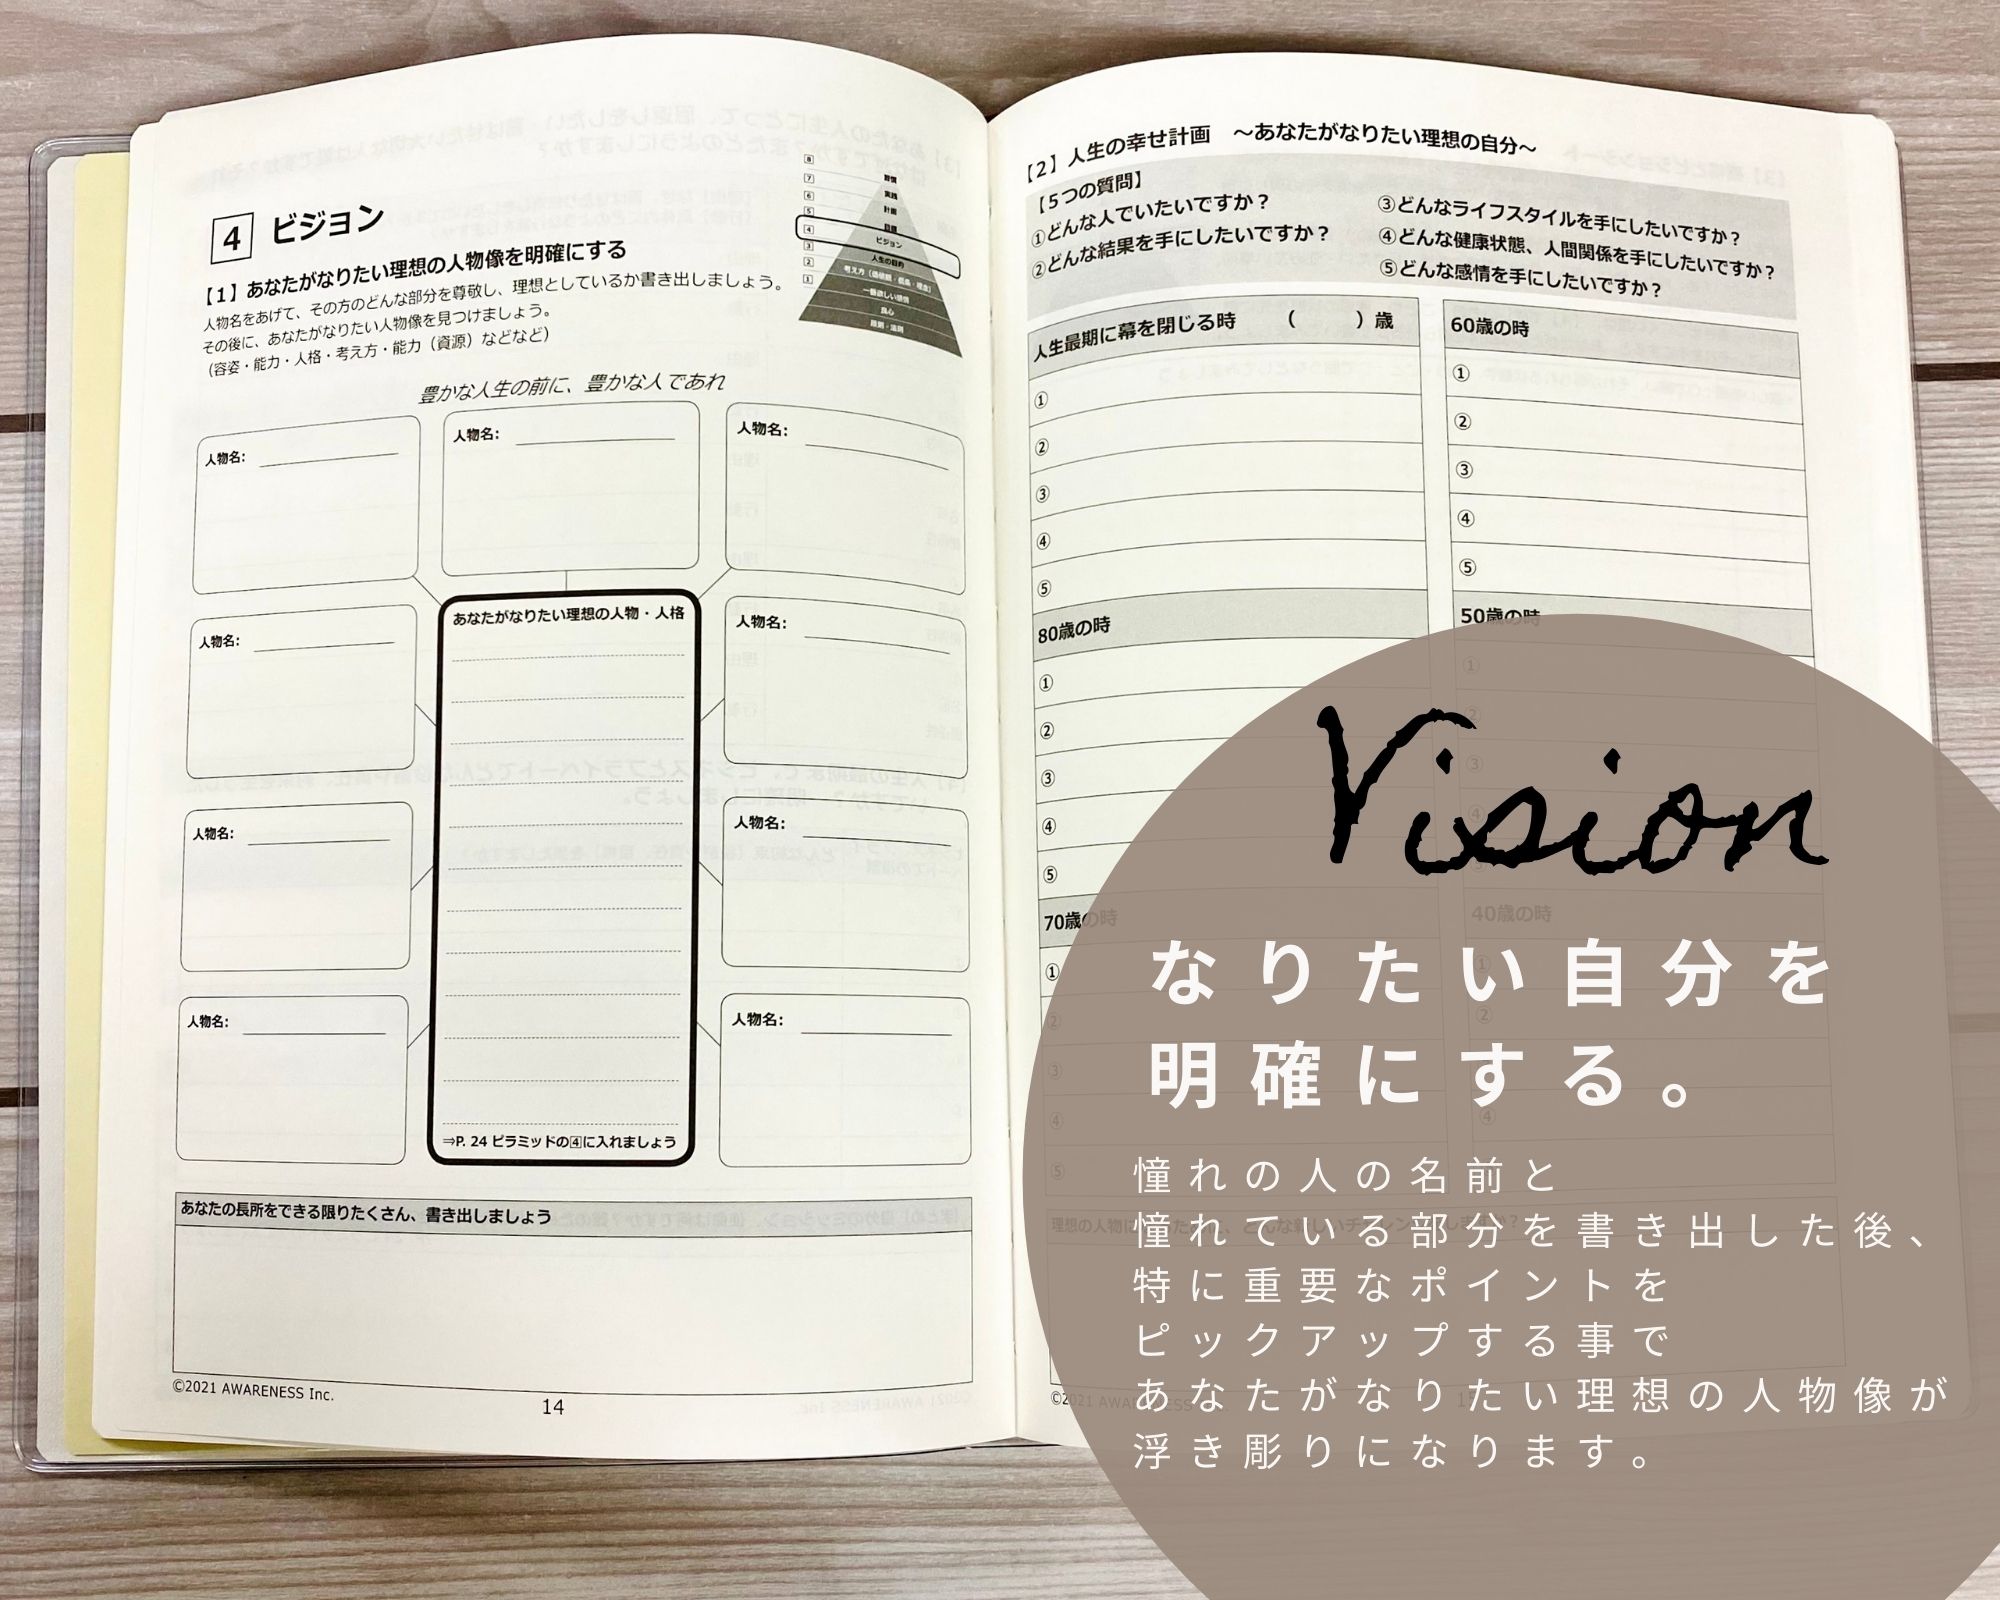 4 ビジョン
【1】あなたがなりたい理想の人物像を明確にする
人物名をあげて、その方のどんな部分を尊敬し、理想としているか書き出しましょう。
その後に、あなたがなりたい人物像を見つけましょう。
(容姿・能力・人格・考え方・能力(資源)などなど)
8
7
6
5
4
3
2
1
習慣
実践
計画
目標
ビジョン
人生の目的
考え方(価値観・信条・理念)
一番欲しい感情
良心
原則・法則
豊かな人生の前に、豊かな人であれ
人物名:
人物名:
人物名:
人物名:
あなたがなりたい理想の人物・人格
人物名:
人物名:
人物名:
人物名:
人物名:
⇒P. 24 ピラミッドの4に入れましょう
あなたの長所をできる限りたくさん、書き出しましょう
©2021 AWARENESS Inc.
14
【2】人生の幸せ計画 ～あなたがなりたい理想の自分～
【5つの質問】
①どんな人でいたいですか?
②どんな結果を手にしたいですか?
③どんなライフスタイルを手にしたいですか?
④どんな健康状態、人間関係を手にしたいですか?
⑤どんな感情を手にしたいですか?
人生最期に幕を閉じる時 ( )歳
①
②
③
④
⑤
80歳の時
①
②
③
④
⑤
70歳の時
①
②
③
④
⑤
60歳の時
①
②
③
④
⑤
50歳の時
①
②
③
④
40歳の時
①
②
④
©2021 AWARENESS
Vision
なりたい自分を
明確にする。
憧れの人の名前と
憧れている部分を書き出した後、
特に重要なポイントを
ピックアップする事で
あなたがなりたい理想の人物像が
浮き彫りになります。